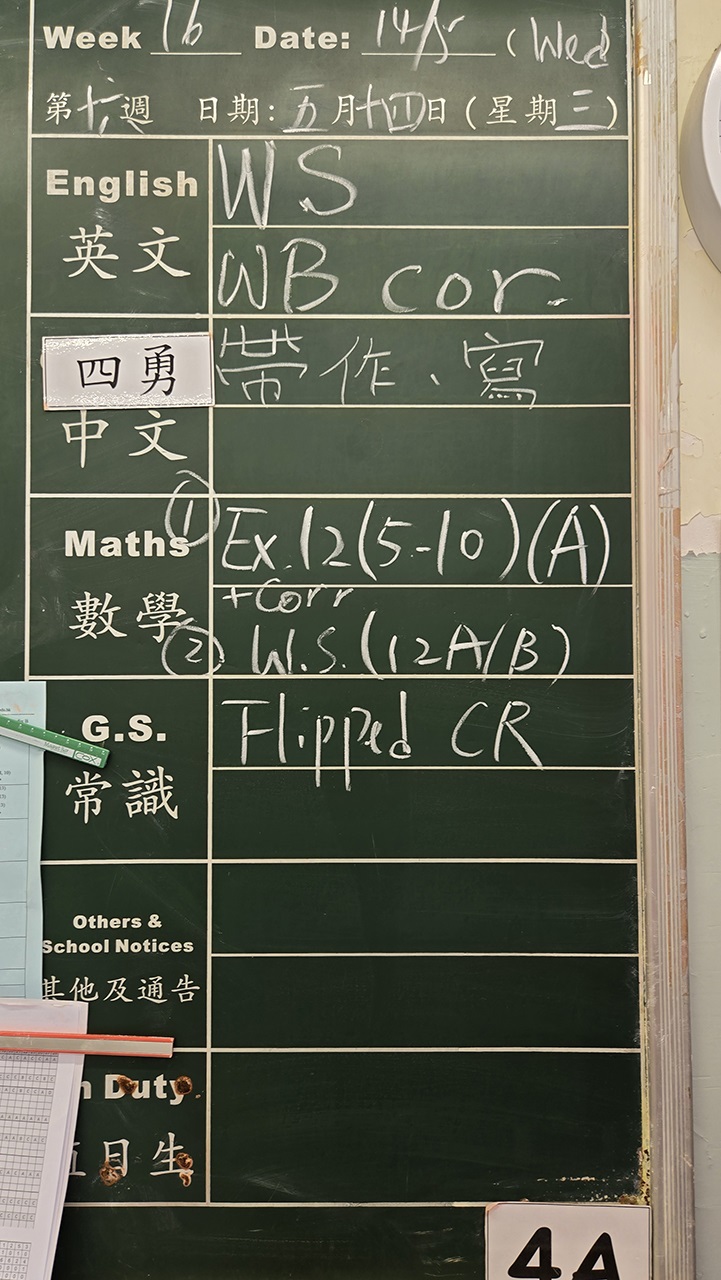 Week 16 Date: 14/5 (Wed
第十六週 日期: 五月十四日 (星期三)
English WS
英文 WB cor.
四勇 帶作、寫
中文
Maths ① Ex.12(5-10)(A)
+Corr
數學 ② W.S.(12A/B)
G.S. Flipped CR
常識
Others &
School Notices
其他及通告
n Duty
日生
4A